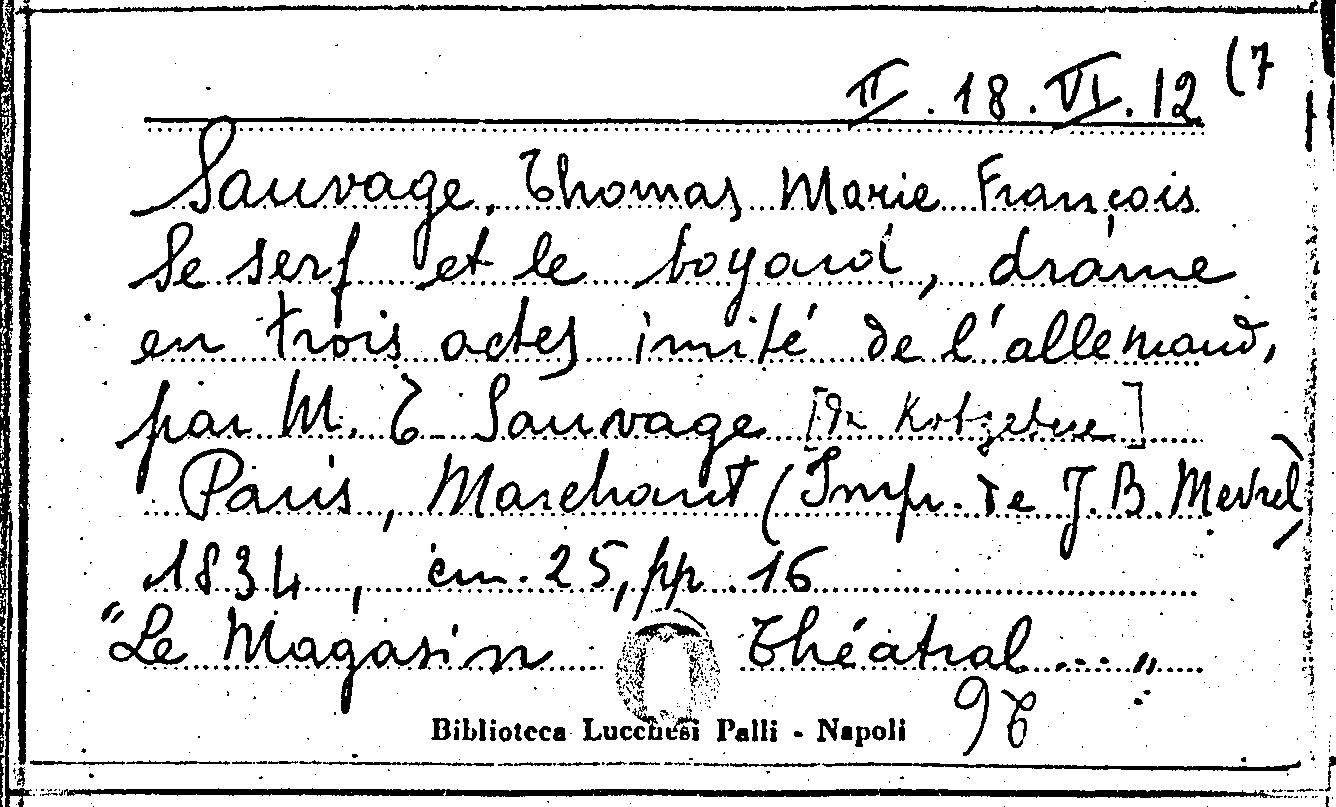 II. 18. VI. 12 (7
Sauvage, Thomas Marie François
Le serf et le boyard, drame
en trois actes imité de l'allemand,
par M. T. Sauvage [de Kotzebue]
Paris, Marchant (Imp. de J. B. Mevrel)
1834, cm. 25, pp. 16
"Le Magasin Théatral ..."
Biblioteca Lucchesi Palli - Napoli